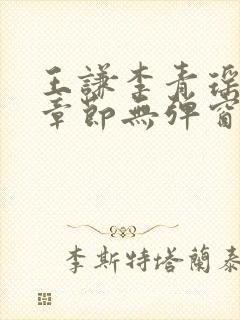 王謙李青瑶
章節無彈窗
李斯特塔蘭泰